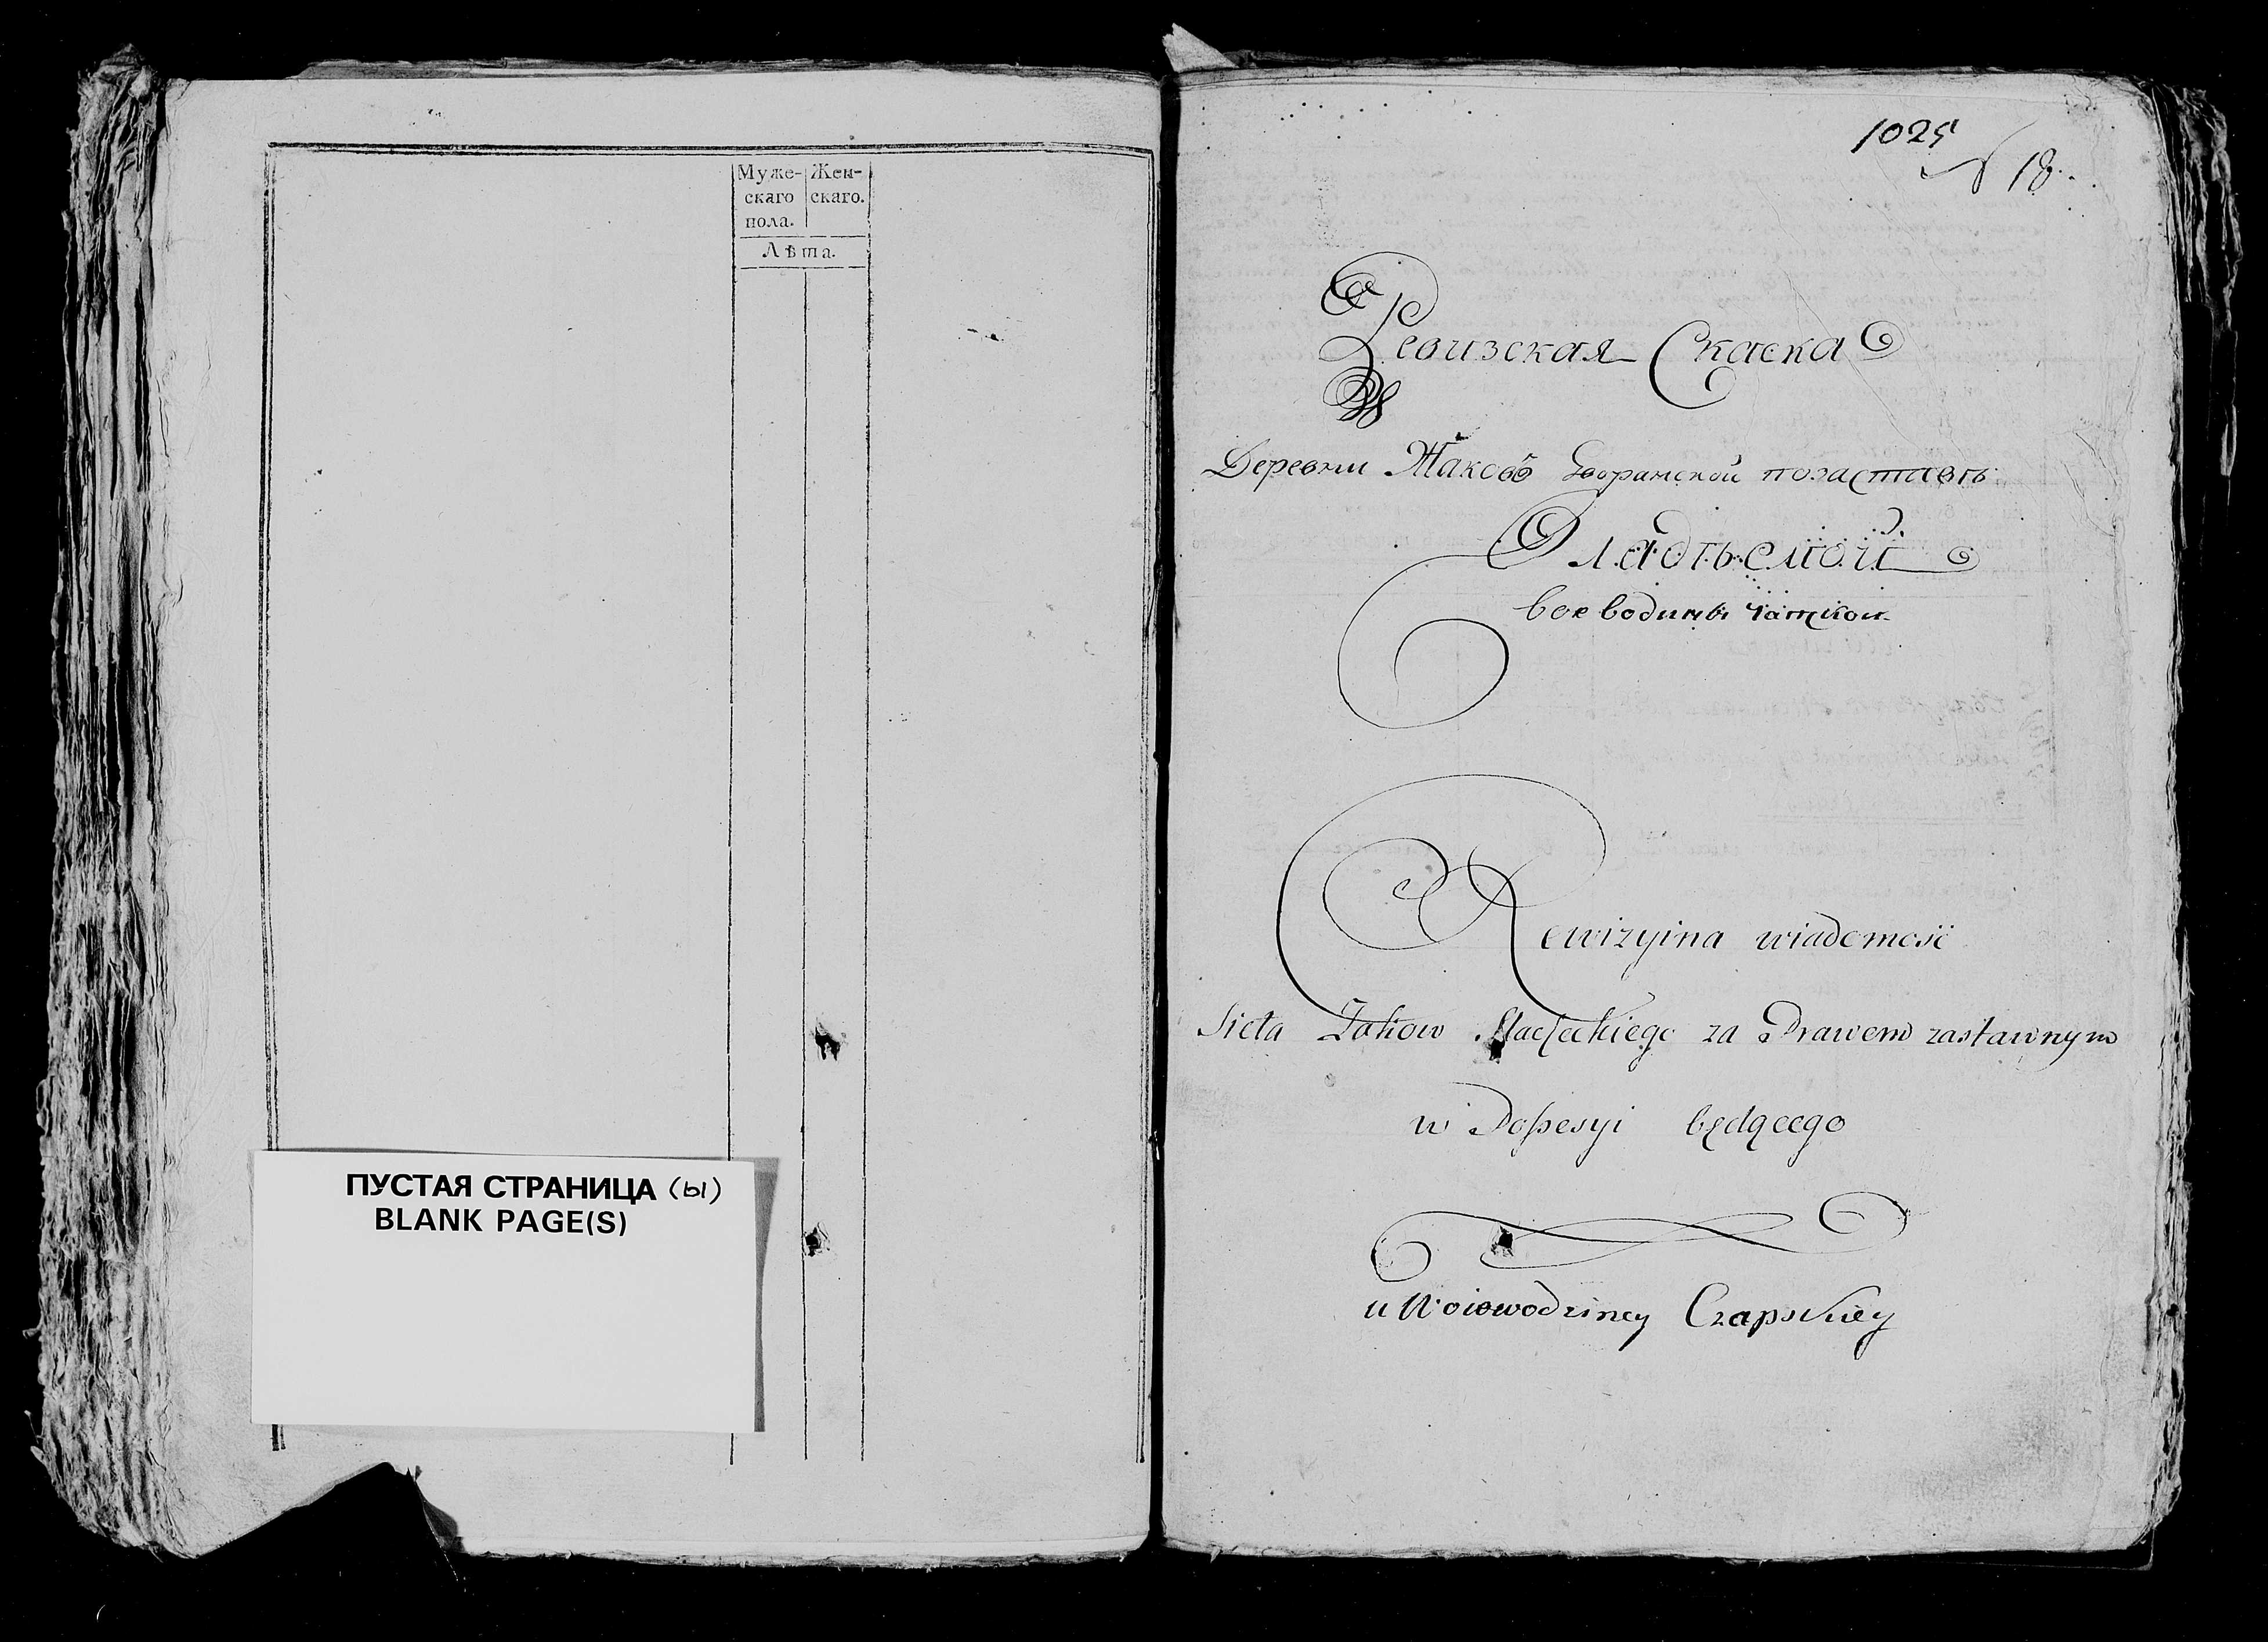 Муже-
скаго
пола.
Жен-
скаго.
Лѣта.
ПУСТАЯ СТРАНИЦА (ы)
BLANK PAGE(S)
1025
N 18.
Ревизская Скаска
Деревни Жаковъ Дворянской позаставѣ
Владѣемой
воеводины Чапской
Rewizyina wiadomość
Sioła Żakow za Prawem zastawnym
w Possesyi będącego
u Woiewodziney Czapskiey